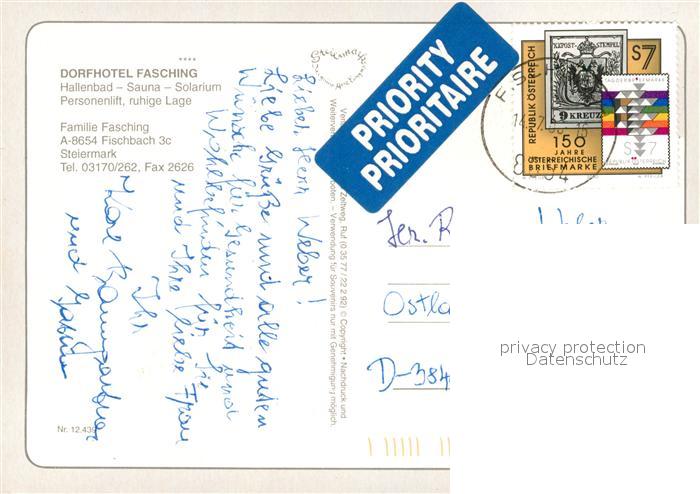 ****
DORFHOTEL FASCHING
Hallenbad – Sauna – Solarium
Personenlift, ruhige Lage
Familie Fasching
A-8654 Fischbach 3c
Steiermark
Tel. 03170/262, Fax 2626
Lieber Herr Weber!
Liebe Grüße und alle guten
Wünsche für Gesundheit und
Wohlbefinden für Sie
und Ihre liebe Frau
Ihr
Karl Baumgartner
und
Nr. 12.439
Zeltweg, Ruf (0 35 77 / 22 2 92) © Copyright • Nachdruck und
– Verwendung für Souvenirs nur mit Genehmigung möglich.
PRIORITY
PRIORITAIRE
REPUBLIK ÖSTERREICH
KK.POST-STEMPEL
9 KREUZER
S7
150
JAHRE
ÖSTERREICHISCHE
BRIEFMARKE
S 7
REPUBLIK ÖSTERREICH
Weber
D-384
privacy protection
Datenschutz